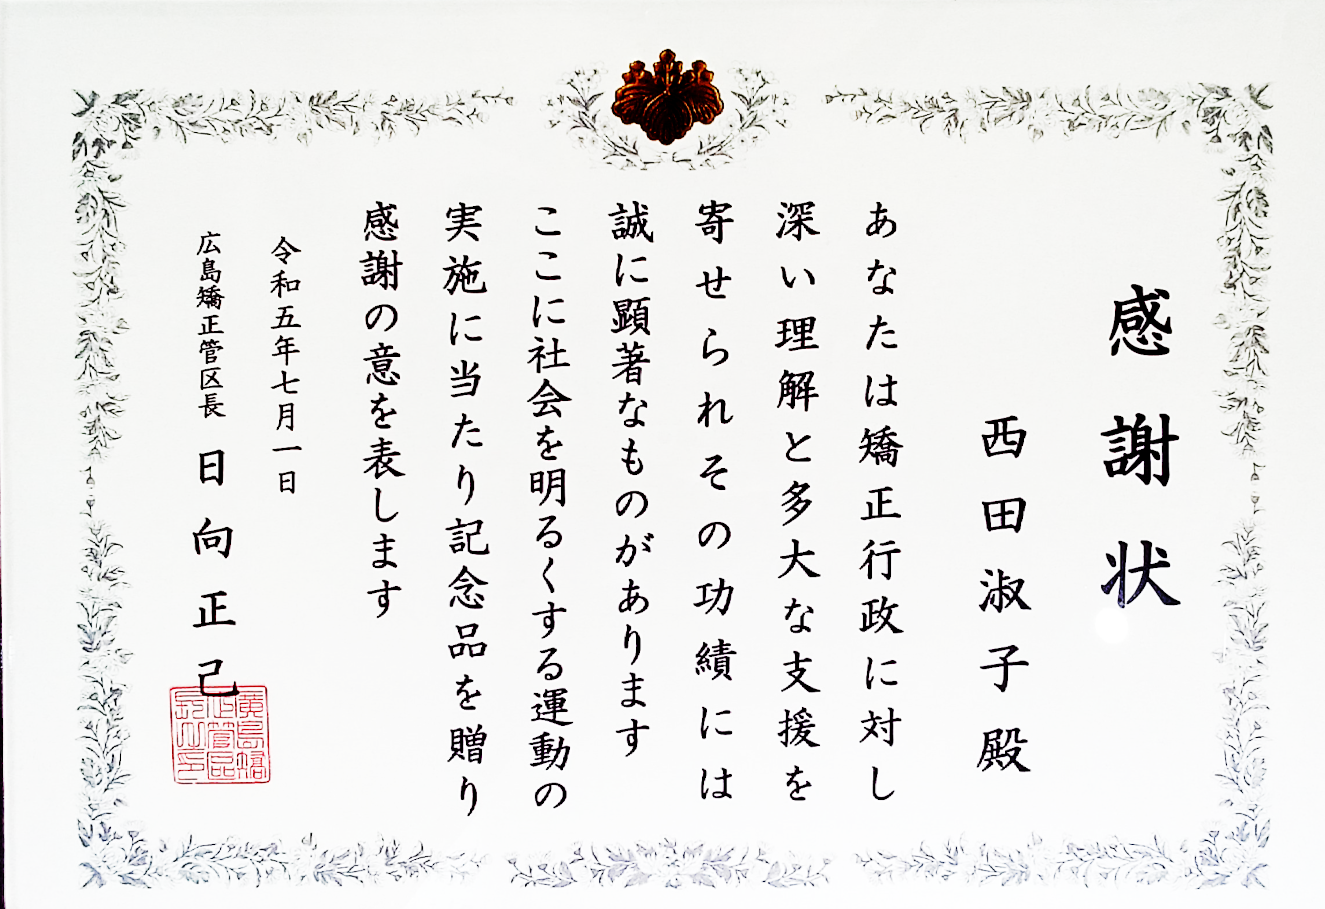 感謝状
西田淑子殿
あなたは矯正行政に対し
深い理解と多大な支援を
寄せられその功績には
誠に顕著なものがあります
ここに社会を明るくする運動の
実施に当たり記念品を贈り
感謝の意を表します
令和五年七月一日
広島矯正管区長 日向正己
廣島矯
正管區
長之印